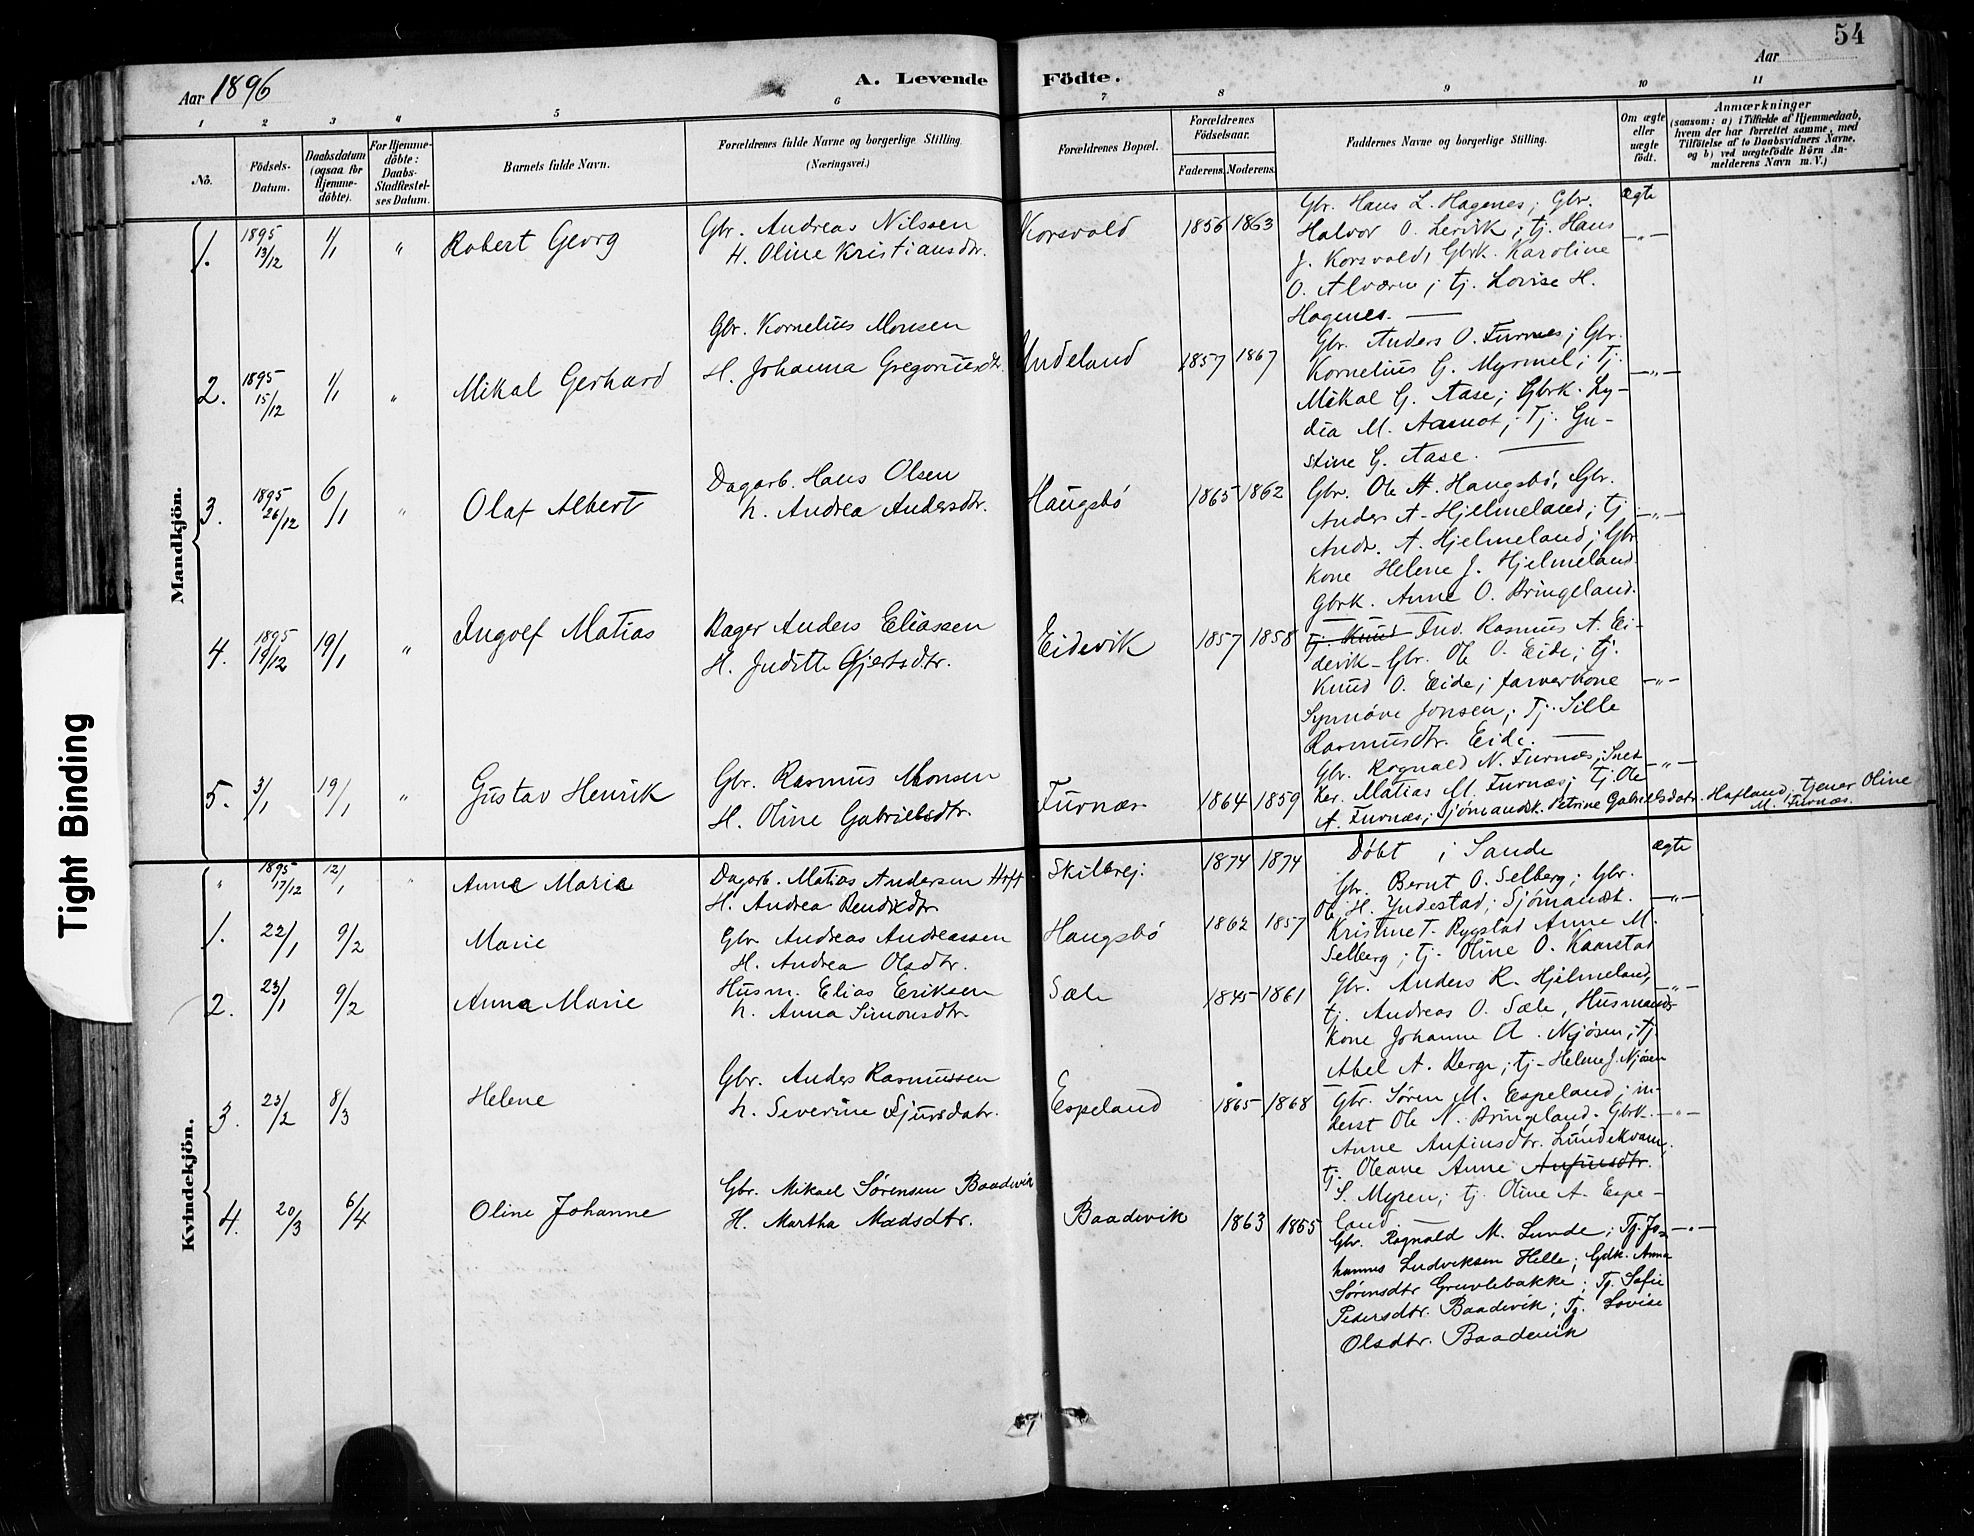 54
Aar 1896
A. Levende Födte.
Aar
1 2 3 4 5 6 7 8 9 10 11
No.
Födsels-Datum.
Daabsdatum (ogsaa for Hjemme-döbte).
For Hjemme-döbte: Daabs-Stadfæstel-ses Datum.
Barnets fulde Navn.
Forældrenes fulde Navne og borgerlige Stilling. (Næringsvei.)
Forældrenes Bopæl.
Forældrenes Födselsaar.
Faderens. Moderens.
Faddernes Navne og borgerlige Stilling.
Om ægte eller uægte födt.
Anmærkninger
(saasom: a) i Tilfælde af Hjemmedaab, hvem der har forrettet samme, med Tilföielse af to Daabsvidners Navne, og b) ved uægtefödte Börn An-melderens Navn m. V.)
Mandkjön.
1. 1895 13/12 1/1 " Robert Georg
Gbr. Andreas Nilssen
H. Oline Kristiansdtr.
Korsvold 1856 1863
Gbr. Hans L. Hagenes; Gbr.
Halvor O. Lervik; tj. Hans
J. Korsvold, Gbrk. Karoline
O. Alværn; tj. Lovise H.
Hagenes. —
ægte
—"—
2. 1895 15/12 1/1 " Mikal Gerhard
Gbr. Kornelius Monsen
H. Johanna Gregoriusdtr.
Indeland 1857 1867
Gbr. Anders O. Furnes; Gbr.
Kornelius G. Myrmel; Tj.
Mikal G. Aase; Gbrk. Ly-
dia M. Aamot; Tj. Gu-
stine G. Aase. —
—"—
3. 1895 26/12 6/1 " Olaf Albert
Dagarb. Hans Olsen
h. Andrea Andersdtr.
Haugsbö 1865 1862
Gbr. Ole A. Haugsbö, Gbr.
Anders A. Hjelmeland; tj
Andr. A. Hjelmeland; Gbr
kone Helene J. Hjelmeland.
Gbrk. Anne O. Bringeland.
—"—
4. 1895 19/12 19/1 " Ingolf Matias
Bager Anders Eliassen
H. Judith Gjertsdtr.
Eidevik 1857 1858
tj. Knud Ind. Rasmus A. Ei-
devik – Gbr. Ole O. Eide; tj.
Knud O. Eide; farverkone
Synnöve Jonsen; Tj. Sille
Rasmusdtr. Eide. —
—"—
5. 3/1 19/1 " Gustav Henrik
Gbr. Rasmus Monsen
H. Oline Gabrielsdtr
Furnæs 1864 1859
Gbr. Rognald N. Furnæs; Sned
ker. Matias M. Furnæs; Tj. Ole
A. Furnæs; Sjömandsk. Petrine Gabrielsdatr. Hafland; tjener Oline
M. Furnæs.
—"—
Kvindekjön.
" 1895 17/12 12/1 " Anne Marie
Dagarb. Matias Andersen
H. Andrea Bendixdtr
Skilbrej. 1874 1874
Döbt i Sande
ægte
1. 22/1 9/2 Marie
Gbr. Andreas Andreassen
H. Andrea Olsdtr.
Haugsbö 1862 1857
Gbr. Bernt O. Selberg; Gbr.
Ole H. Yndestad; Sjömandst.
Kristine T. Rygstad Anne M.
Selberg; tj. Oline O. Kaarstad
—"—
2. 23/1 9/2 Anna Marie
Husm. Elias Eriksen
h. Anna Simonsdtr
Sæle 1845 1861
Gbr. Anders R. Hjelmeland,
tj. Andreas O. Sæle, Husmands
kone Johanne A. Njösen; tj.
Abel A. Berge; tj. Helene J. Njösen
—"—
3. 23/2 8/3 Helene
Gbr. Anders Rasmussen
h. Severine Sjursdatr.
Espeland 1865 1868
Gbr. Sören M. Espeland; in-
derst Ole N. Bringeland. Gbrk.
Anne Anfinsdtr. Lundekvam;
tj. Oleane Anne Anfinsdtr.
S. Myren; tj. Oline A. Espe-
land —
—"—
4. 20/3 6/4 Oline Johanne
Gbr. Mikael Sörensen Baadevik
H. Martha Madsdtr.
Baadevik 1863 1865
Gbr. Rognald M. Lunde; Tj. Jo-
hannes Ludviksen Hille; Gdk. Anna
Sörensdtr Gruvlebakke; Tj. Sofie
Pedersdtr. Baadevik; Tj. Lovise
Olsdtr. Baadevik
—"—
Tight Binding